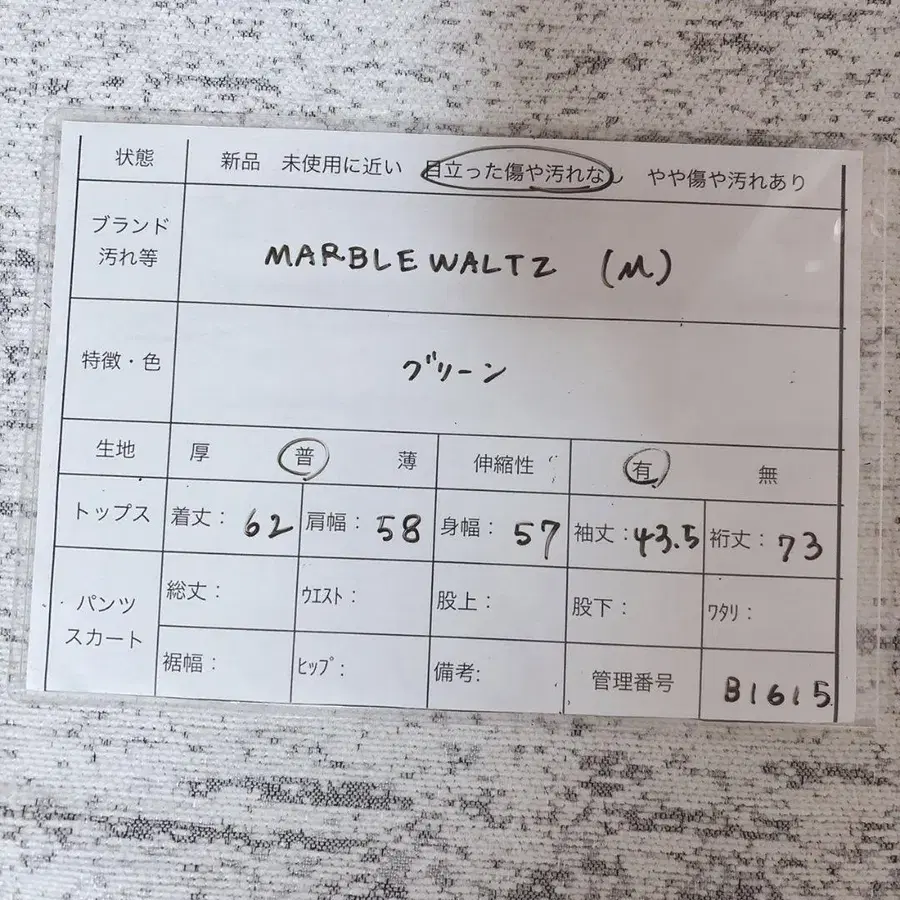 状態 新品 未使用に近い 目立った傷や汚れなし やや傷や汚れあり
ブランド
汚れ等
MARBLE WALTZ (M)
特徴・色 グリーン
生地 厚 普 薄 伸縮性 有 無
トップス 着丈: 62 肩幅: 58 身幅: 57 袖丈: 43.5 裄丈: 73
パンツ
スカート
総丈: ウエスト: 股上: 股下: ワタリ:
裾幅: ヒップ: 備考: 管理番号 B1615